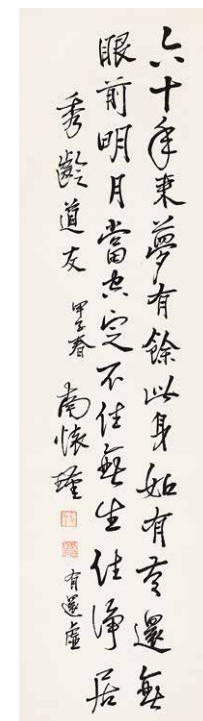 六十年來夢有餘此身如有還無
眼前明月當空定不住無生住淨居
秀齡道友 甲子春 南懷瑾 有還虛